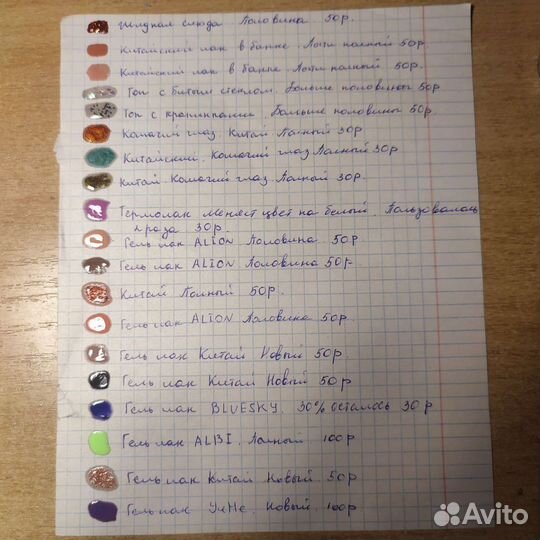 Жидкая слюда Половина 50р.
Китайский лак в банке. Почти полный 50р.
Китайский лак в банке. Почти полный 50р.
Топ с битым стеклом. Больше половины 50р
Топ с крапинками. Больше половины 50р.
Кошачий глаз. Китай Полный 30р.
Китайский. Кошачий глаз Полный 30р.
Китай. Кошачий глаз Полный 30р.
Термолак меняет цвет на белый. Пользовалась
2 раза 30р.
Гель лак ALION Половина. 50р.
Гель лак ALION Половина 50р.
Китай Полный 50р.
Гель лак ALION Половина 50р.
Гель лак Китай Новый 50р.
Гель лак Китай Новый 50р
Гель лак BLUESKY. 30% осталось 30р
Гель лак ALBI. Полный. 100р
Гель лак Китай Новый. 50р
Гель лак УNМе. Новый. 100р
Avito